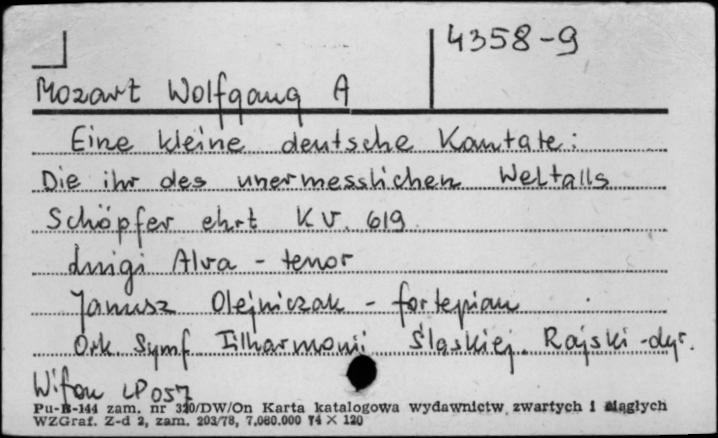 4358-9
Mozart Wolfgang A
Eine kleine deutsche Kantate:
Die ihr des unermesslichen Weltalls
Schöpfer ehrt KV. 619
Luigi Alva - tenor
Janusz Olejniczak - fortepian
Ork. Symf Filharmonii Śląskiej. Rajski - dyr.
Wifon LP 057
Pu-B-144 zam. nr 320/DW/On Karta katalogowa wydawnictw zwartych i ciągłych
WZGraf. Z-d 2, zam. 203/78, 7.080.000 74 × 120